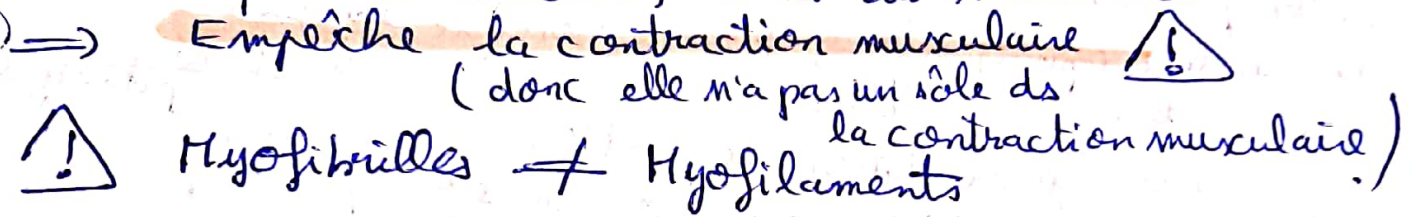 ⇒ Empêche la contraction musculaire ⚠
(donc elle n'a pas un rôle ds
la contraction musculaire.)
⚠ Myofibrilles ≠ Myofilaments